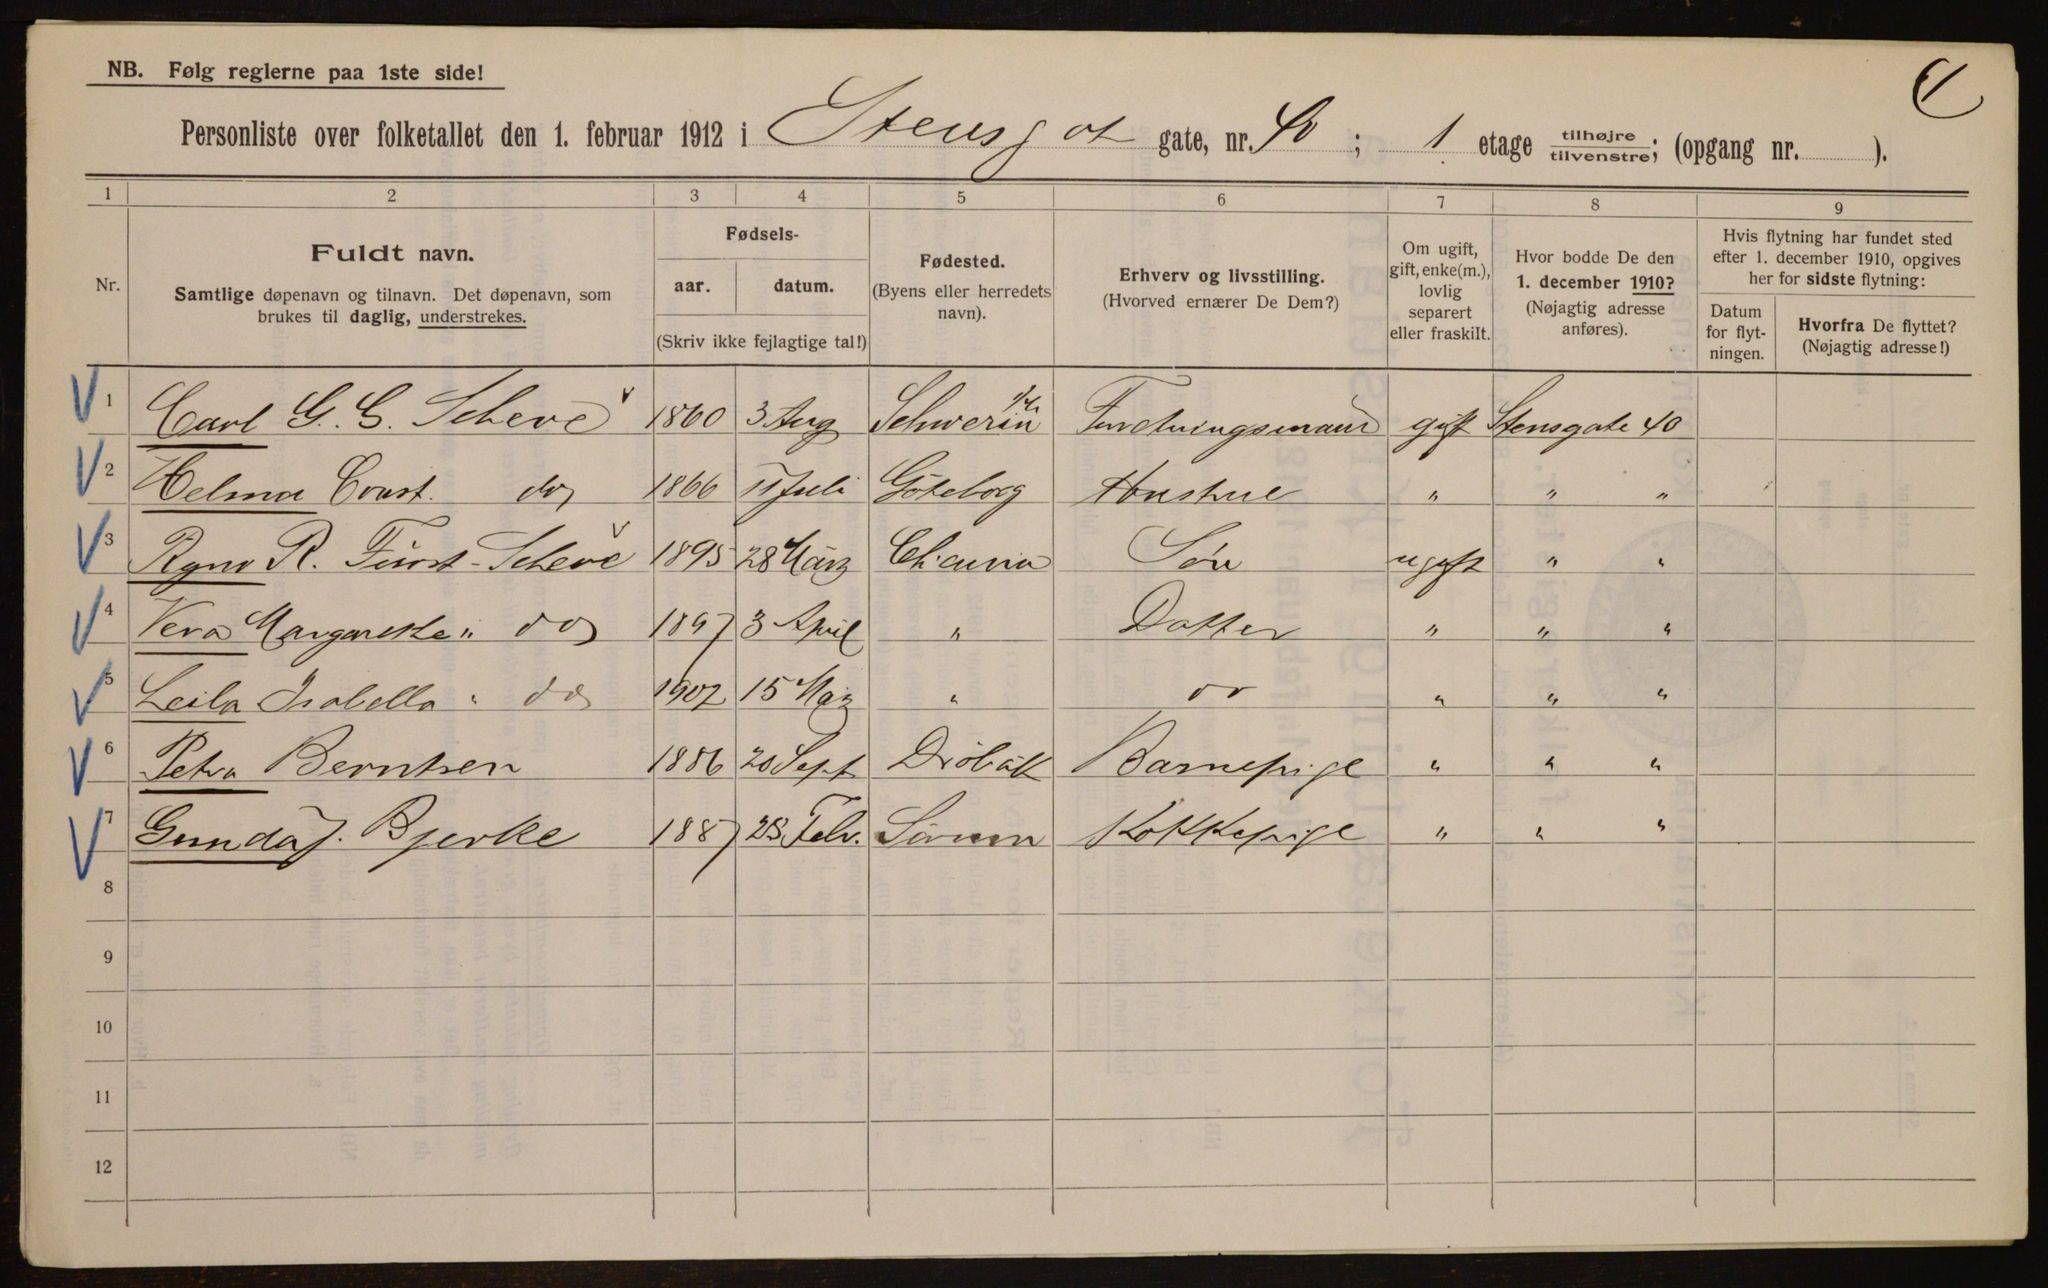 NB. Følg reglerne paa 1ste side!
1
Personliste over folketallet den 1. februar 1912 i Stensgat gate, nr. 40 ; 1 etage tilhøjre/tilvenstre; (opgang nr. ).
1 2 3 4 5 6 7 8 9
Nr.
Fuldt navn.
Samtlige døpenavn og tilnavn. Det døpenavn, som
brukes til daglig, understrekes.
Fødsels-
aar. datum.
(Skriv ikke fejlagtige tal!)
Fødested.
(Byens eller herredets
navn).
Erhverv og livsstilling.
(Hvorved ernærer De Dem?)
Om ugift,
gift, enke(m.),
lovlig
separert
eller fraskilt.
Hvor bodde De den
1. december 1910?
(Nøjagtig adresse
anføres).
Hvis flytning har fundet sted
efter 1. december 1910, opgives
her for sidste flytning:
Datum
for flyt-
ningen.
Hvorfra De flyttet?
(Nøjagtig adresse!)
1 Carl G. G. Scheve 1860 3 Aug Schwerin gift Stensgate 40
2 Helma Const. do 1866 11 Juli Göteborg Hustrue " " "
3 Ragnv R. Fürst-Scheve 1895 28 März Chania Sön ugift " "
4 Vera Margarethe " do 1897 3 April " Datter " " "
5 Leila Isabella " do 1902 15 März " do " " "
6 Petra Berntsen 1886 20 Sept Dröbak Barnepige " " "
7 Gunda J. Bjerke 1887 28 Febr. Sörum Kokkepige " " "
8
9
10
11
12